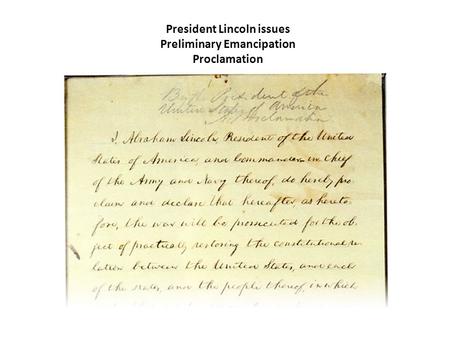 President Lincoln issues
Preliminary Emancipation
Proclamation
By the President of the
United States of America
A Proclamation
I, Abraham Lincoln, President of the United
States of America, and Commander-in-Chief
of the Army and Navy thereof, do hereby pro-
claim and declare that hereafter, as hereto-
fore, the war will be prosecuted for the ob-
ject of practically restoring the constitutional re-
lation between the United States, and each
of the states, and the people thereof, in which